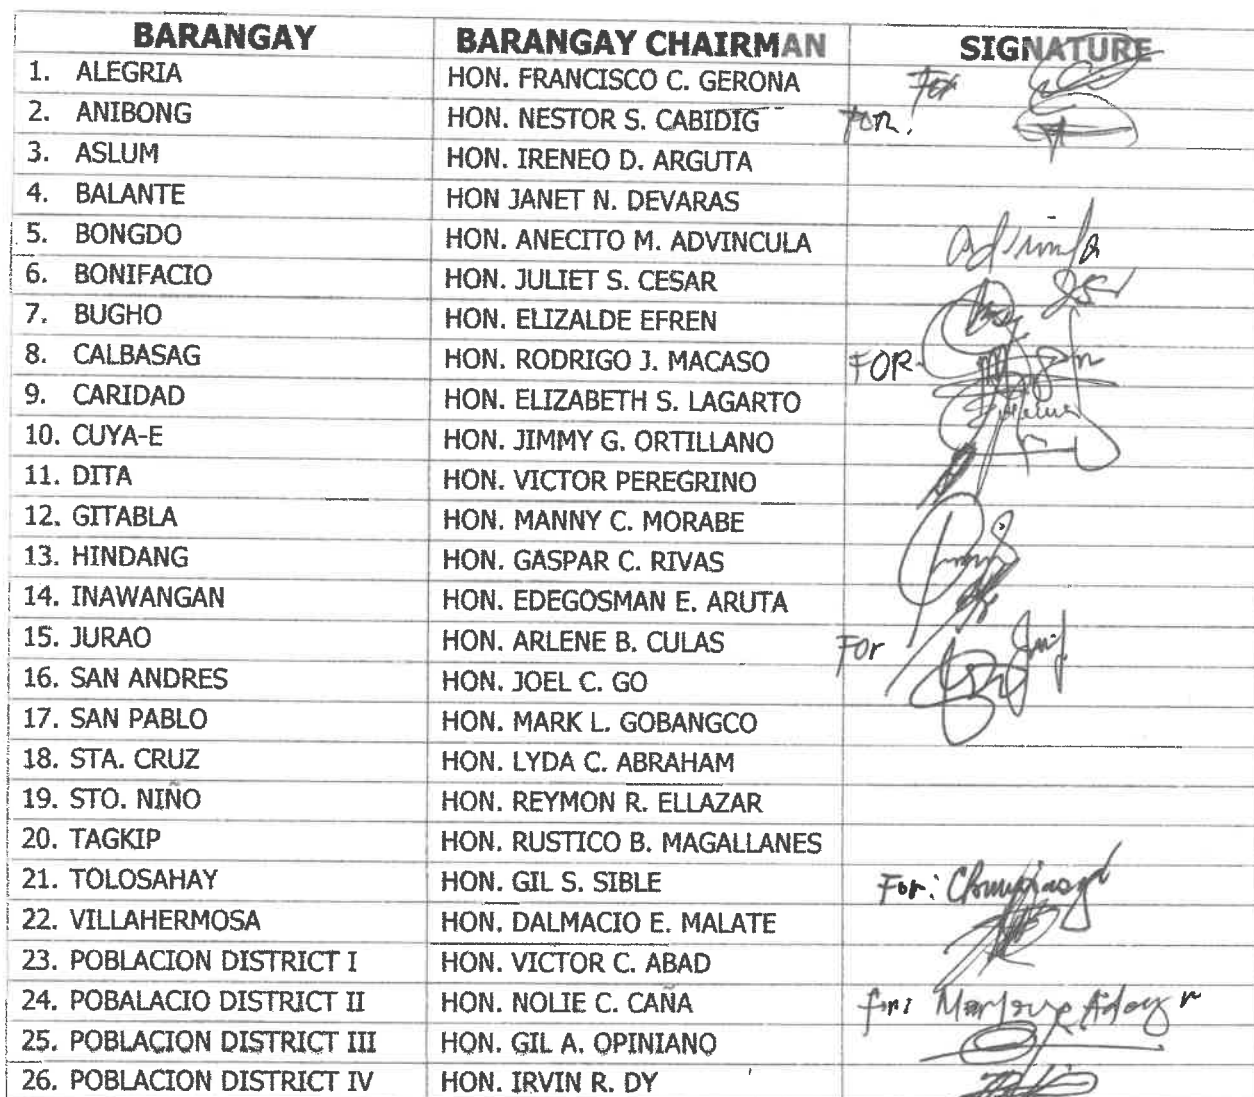 BARANGAY BARANGAY CHAIRMAN SIGNATURE
1. ALEGRIA HON. FRANCISCO C. GERONA For
2. ANIBONG HON. NESTOR S. CABIDIG For.
3. ASLUM HON. IRENEO D. ARGUTA
4. BALANTE HON JANET N. DEVARAS
5. BONGDO HON. ANECITO M. ADVINCULA
6. BONIFACIO HON. JULIET S. CESAR
7. BUGHO HON. ELIZALDE EFREN
8. CALBASAG HON. RODRIGO J. MACASO FOR
9. CARIDAD HON. ELIZABETH S. LAGARTO
10. CUYA-E HON. JIMMY G. ORTILLANO
11. DITA HON. VICTOR PEREGRINO
12. GITABLA HON. MANNY C. MORABE
13. HINDANG HON. GASPAR C. RIVAS
14. INAWANGAN HON. EDEGOSMAN E. ARUTA
15. JURAO HON. ARLENE B. CULAS For
16. SAN ANDRES HON. JOEL C. GO
17. SAN PABLO HON. MARK L. GOBANGCO
18. STA. CRUZ HON. LYDA C. ABRAHAM
19. STO. NIÑO HON. REYMON R. ELLAZAR
20. TAGKIP HON. RUSTICO B. MAGALLANES
21. TOLOSAHAY HON. GIL S. SIBLE For:
22. VILLAHERMOSA HON. DALMACIO E. MALATE
23. POBLACION DISTRICT I HON. VICTOR C. ABAD
24. POBALACIO DISTRICT II HON. NOLIE C. CAÑA for:
25. POBLACION DISTRICT III HON. GIL A. OPINIANO
26. POBLACION DISTRICT IV HON. IRVIN R. DY